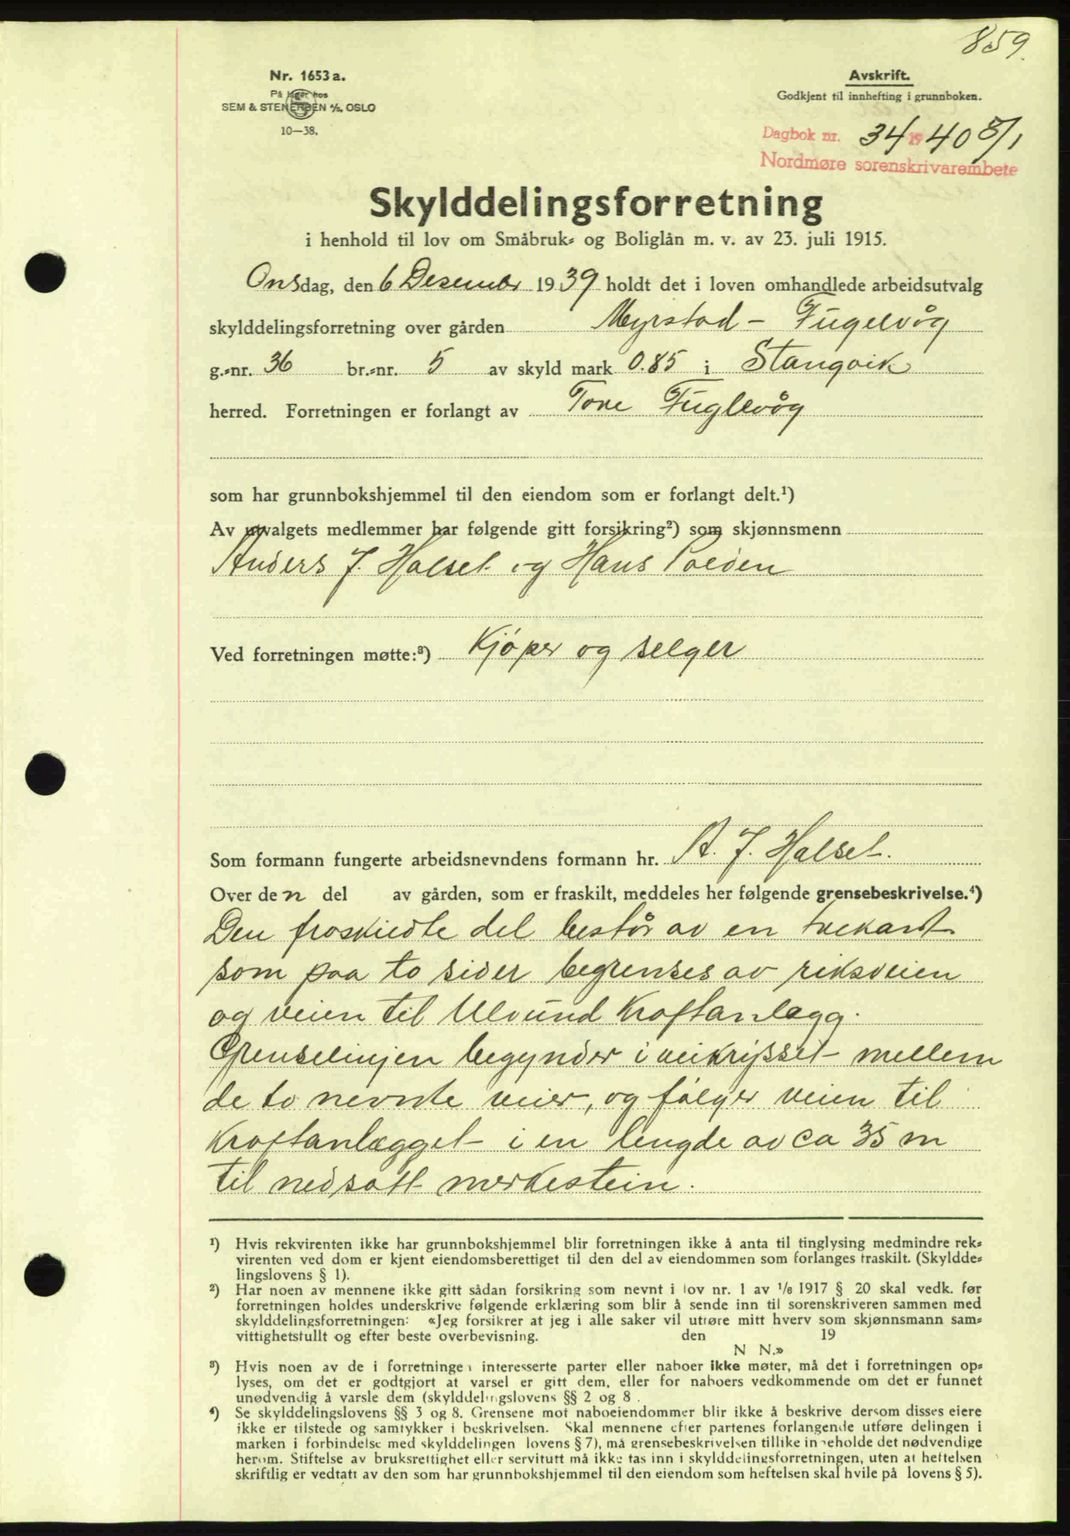 859.
Nr. 1653 a.
På lager hos
SEM & STENERSEN A/S, OSLO
10—38.
Avskrift.
Godkjent til innhefting i grunnboken.
Dagbok nr. 34 19 40 5/1
Nordmøre sorenskrivarembete
Skylddelingsforretning
i henhold til lov om Småbruk- og Boliglån m. v. av 23. juli 1915.
Onsdag, den 6 Desember 1939 holdt det i loven omhandlede arbeidsutvalg
skylddelingsforretning over gården Myrstad - Fugelvåg
g.-nr. 36 br.-nr. 5 av skyld mark 0.85 i Stangvik
herred. Forretningen er forlangt av Tore Fuglevåg
som har grunnbokshjemmel til den eiendom som er forlangt delt.¹)
Av utvalgets medlemmer har følgende gitt forsikring²) som skjønnsmenn
Anders J. Halset og Hans
Ved forretningen møtte:³) Kjøper og selger
Som formann fungerte arbeidsnevndens formann hr. A. J. Halset.
Over den del av gården, som er fraskilt, meddeles her følgende grensebeskrivelse.⁴)
Den fraskildte del består av en trekant
som paa to sider begrenses av riksveien
og veien til Ulvund Kraftanlægg.
Grenselinjen begynder i veikrysset mellem
de to nevnte veier, og følger veien til
Kraftanlægget i en lengde av ca 35 m
til nedsatt merkestein.
¹) Hvis rekvirenten ikke har grunnbokshjemmel blir forretningen ikke å anta til tinglysing medmindre rek-
virenten ved dom er kjent eiendomsberettiget til den del av eiendommen som forlanges fraskilt. (Skyldde-
lingslovens § 1).
²) Har noen av mennene ikke gitt sådan forsikring som nevnt i lov nr. 1 av 1/6 1917 § 20 skal vedk. før
forretningen holdes underskrive følgende erklæring som blir å sende inn til sorenskriveren sammen med
skylddelingsforretningen: «Jeg forsikrer at jeg i alle saker vil utføre mitt hverv som skjønnsmann sam-
vittighetsfullt og efter beste overbevisning. den 19
N N.»
³) Hvis noen av de i forretningen interesserte parter eller naboer ikke møter, må det i forretningen op-
lyses, om det er godtgjort at varsel er gitt dem, eller for naboers vedkommende om det er funnet
unødvendig å varsle dem (skylddelingslovens §§ 2 og 8.
⁴) Se skylddelingslovens §§ 3 og 8. Grensene mot naboeiendommer blir ikke å beskrive dersom disses eiere
ikke er tilstede og samtykker i beskrivelsen. Skal mennene efter partenes forlangende utføre delingen i
marken i forbindelse med skylddelingen lovens § 7), må grensebeskrivelsen tillike inneholde det nødvendige
herom. Stiftelse av bruksrettighet eller servitutt må ikke tas inn i skylddelingsforretningen, uten at heftelsen
skriftlig er vedtatt av den som har grunnbokshjemmel til den eiendom som heftelsen skal hvile på lovens § 5).